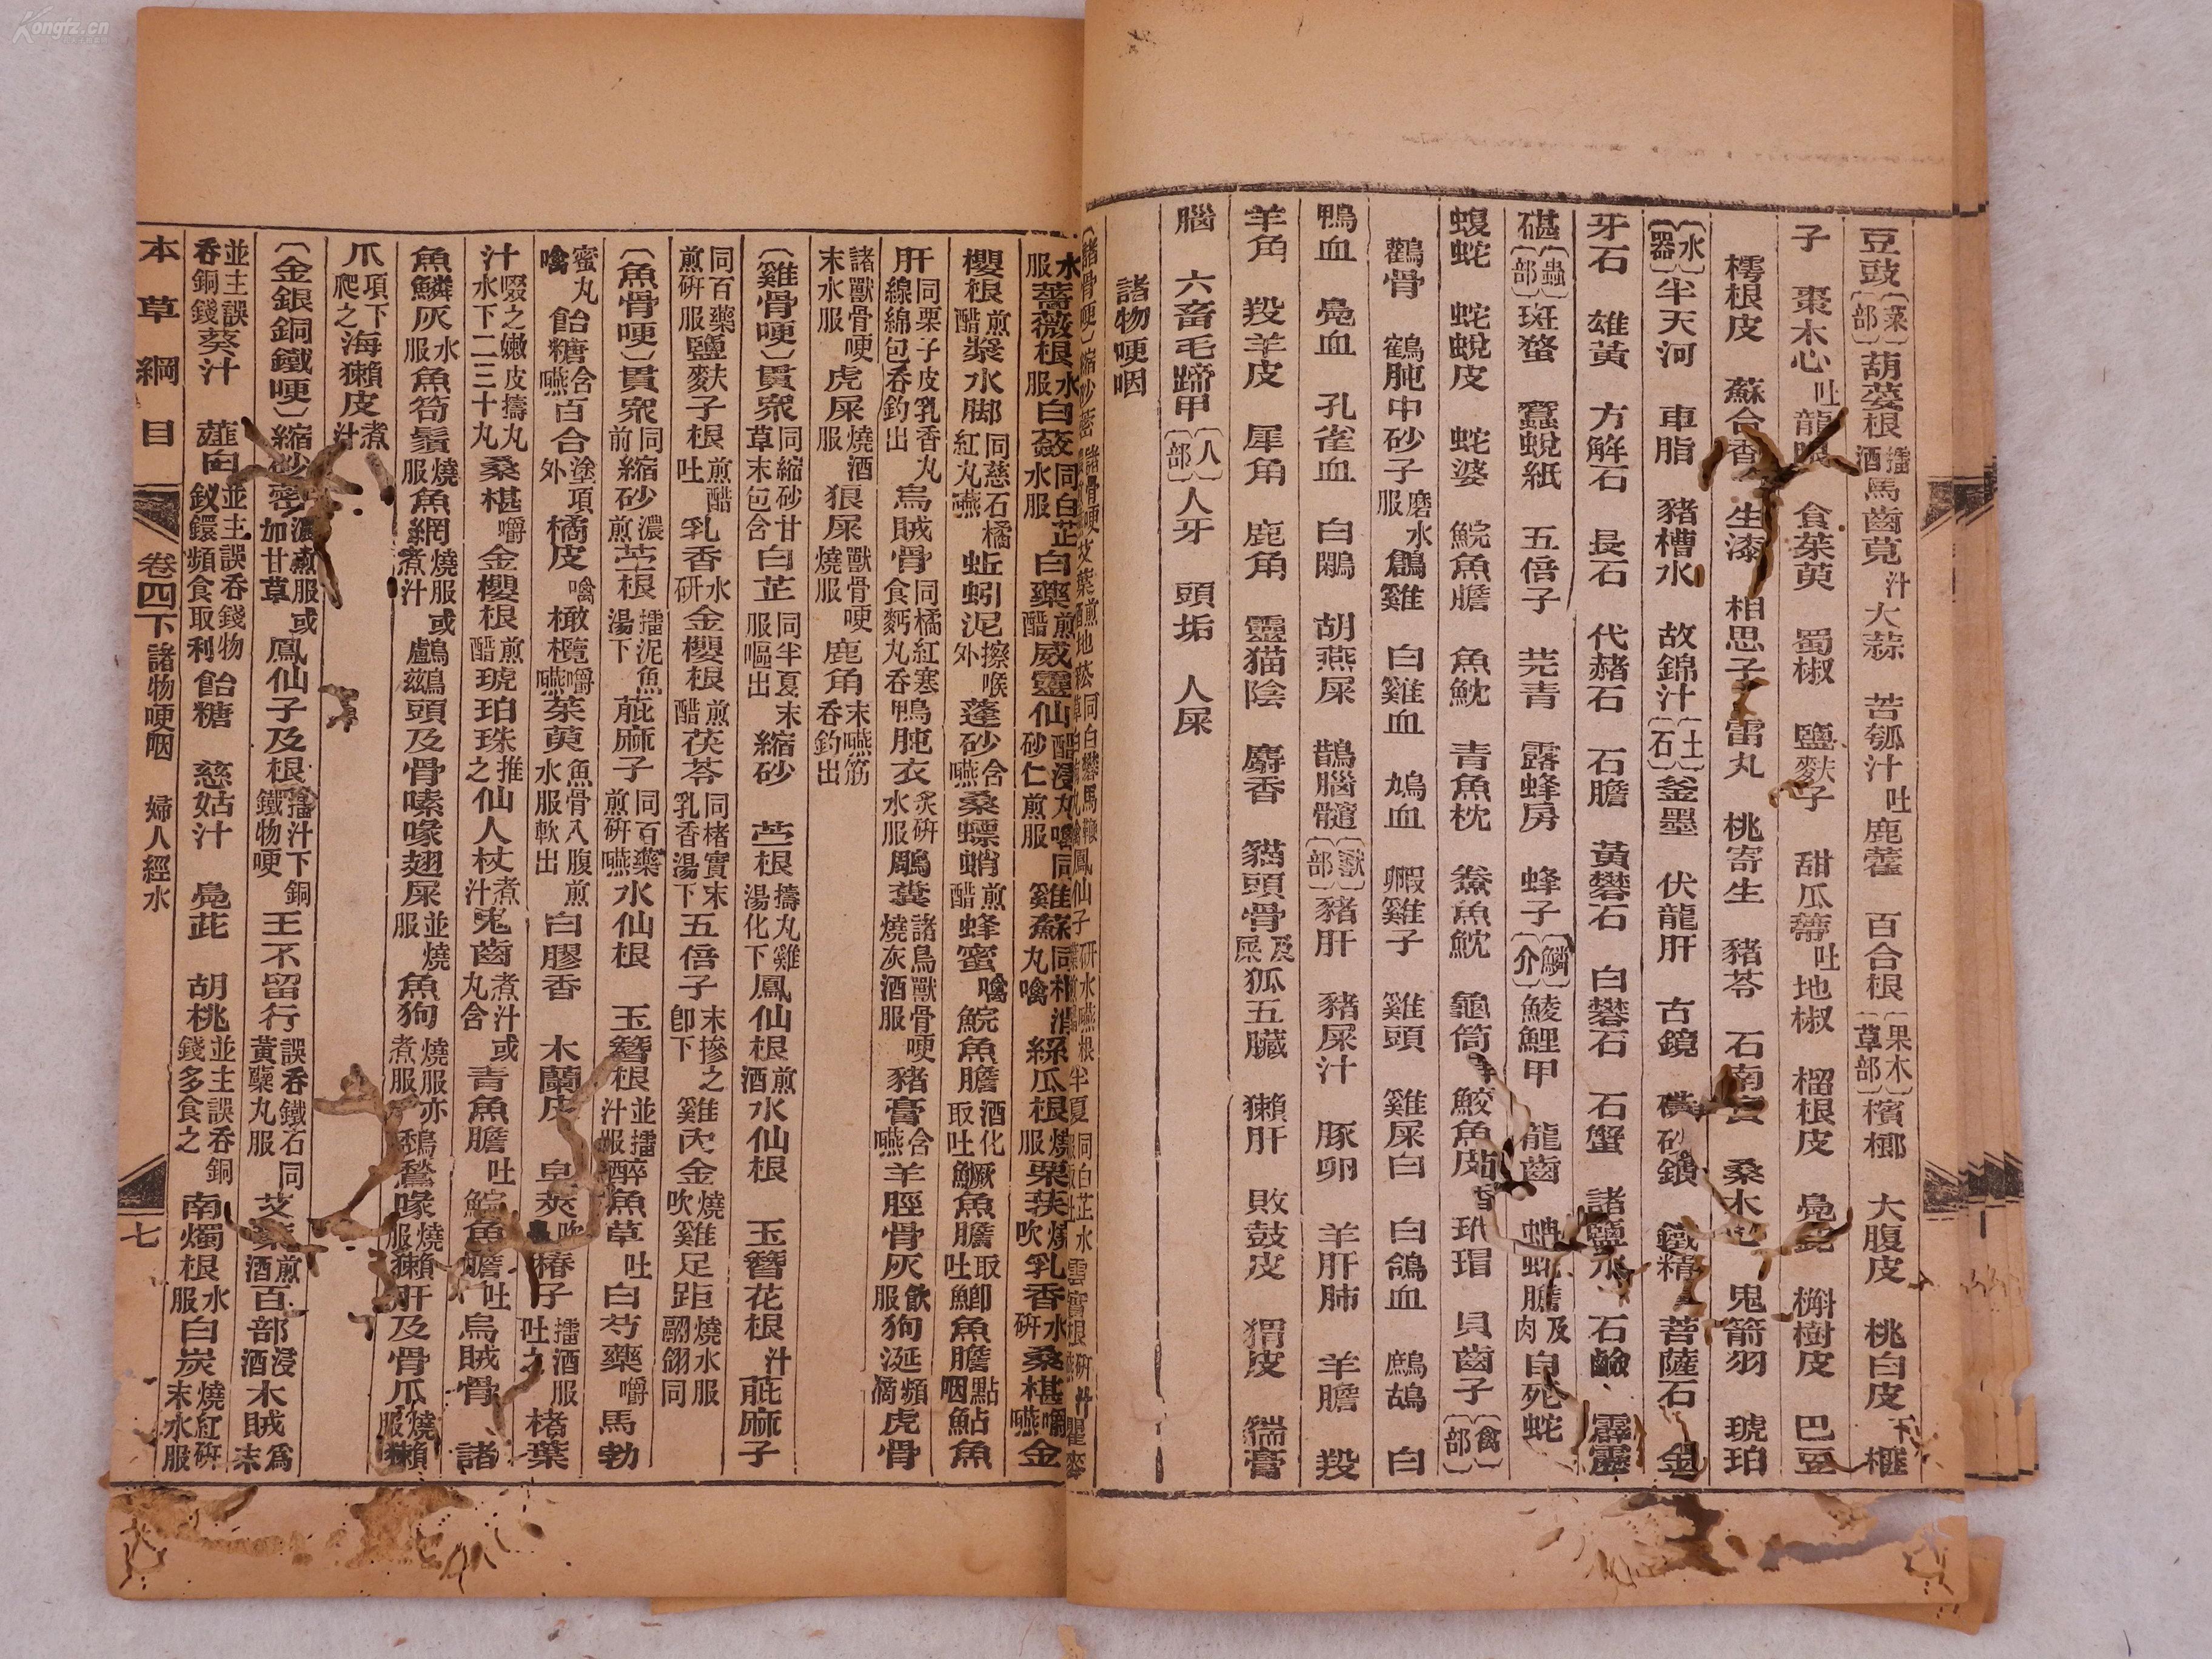 豆豉〔菜部〕葫荽根擂酒馬齒莧汁大蒜 苦瓠汁吐鹿藿 百合根〔果木草部〕檳榔 大腹皮 桃白皮下榧
子 棗木心吐龍眼 食茱萸 蜀椒 鹽麩子 甜瓜蒂吐地椒 榴根皮 鳧茈 槲樹皮 巴豆
樗根皮 蘇合香 生漆 相思子 雷丸 桃寄生 豬苓 石南實 桑木 鬼箭羽 琥珀
〔水器〕半天河 車脂 豬槽水 故錦汁〔土石〕釜墨 伏龍肝 古鏡 砂鎖 鐵精 菩薩石 金
牙石 雄黃 方解石 長石 代赭石 石膽 黃礬石 白礬石 石蟹 諸鹽水 石鹼 霹靂
碪〔蟲部〕斑蝥 蠶蛻紙 五倍子 芫青 露蜂房 蜂子〔鱗介〕鯪鯉甲 龍齒 蚺蛇膽及肉 自死蛇
蝮蛇 蛇蛻皮 蛇婆 鯇魚膽 魚魫 青魚枕 鮝魚魫 龜筒 鮫魚皮 玳瑁 貝齒子〔禽部〕
鸛骨 鶴肫中砂子磨水服鶬雞 白雞血 鳩血 鷃雞子 雞頭 雞屎白 白鴿血 鷓鴣 白
鴨血 鳧血 孔雀血 白鷴 胡燕屎 鵲腦髓〔獸部〕豬肝 豬屎汁 豚卵 羊肝肺 羊膽 羖
羊角 羖羊皮 犀角 鹿角 靈猫陰 麝香 貓頭骨及屎狐五臟 獺肝 敗鼓皮 猬皮 猯膏
腦 六畜毛蹄甲〔人部〕人牙 頭垢 人屎
諸物哽咽
〔諸骨哽〕縮砂蔤
水服薔薇根水服白蘞同白芷水服白藥煎醋威靈仙醋浸丸噙同砂仁煎服雞蘇同朴消丸噙絲瓜根燒服栗莢燒吹乳香水研桑椹嚼嚥金
櫻根煎醋漿水脚同慈石橘紅丸嚥蚯蚓泥擦喉外蓬砂含嚥桑螵蛸煎醋蜂蜜噙鯇魚膽酒化取吐鱖魚膽取吐鯽魚膽點咽鮎魚
肝同栗子皮乳香丸線綿包吞釣出烏賊骨同橘紅塞食麪丸吞鴨肫衣炙研水服鵰糞諸鳥獸骨哽燒灰酒服豬膏含嚥羊脛骨灰飲服狗涎頻滴虎骨
諸獸骨哽末水服虎屎燒酒服狼屎獸骨哽燒服鹿角末嚥筋吞釣出
〔雞骨哽〕貫衆同縮砂甘草末包含白芷同半夏末服嘔出縮砂 苧根擣丸雞湯化下鳳仙根煎酒水仙根 玉簪花根汁蓖麻子
同百藥煎研服鹽麩子根煎醋吐乳香水研金櫻根煎醋茯苓同楮實末乳香湯下五倍子末摻之卽下雞內金燒吹雞足距燒水服翮翎同
〔魚骨哽〕貫衆同前縮砂濃煎苧根擂泥魚湯下蓖麻子同百藥煎研嚥水仙根 玉簪根並擂汁服醉魚草吐白芍藥嚼馬勃
蜜丸噙飴糖含嚥百合塗項外橘皮噙橄欖嚼嚥茱萸魚骨入腹煎水服軟出白膠香 木蘭皮 皁莢吹椿子擂酒服吐之楮葉
汁啜之嫩皮擣丸水下二三十丸桑椹嚼金櫻根煎醋琥珀珠推之仙人杖煮汁鬼齒煮汁或丸含青魚膽吐鯇魚膽吐烏賊骨 諸
魚鱗灰水服魚笱鬚燒服魚網燒服或煮汁鸕鷀頭及骨嗉喙翅屎並燒服魚狗燒服亦煮服鵚鶖喙燒服獺肝及骨爪燒服獺
爪項下爬之海獺皮煮汁
〔金銀銅鐵哽〕縮砂蔤濃煎服或加甘草鳳仙子及根擂汁下銅鐵物哽王不留行誤吞鐵石同黃蘗丸服艾葉煎酒百部浸酒木賊爲末
並主誤吞銅錢葵汁 薤白並主誤吞錢物釵鐶頻食取利飴糖 慈姑汁 鳧茈 胡桃並主誤吞銅錢多食之南燭根水服白炭燒紅研末水服
本草綱目 卷四下 諸物哽咽 婦人經水 七